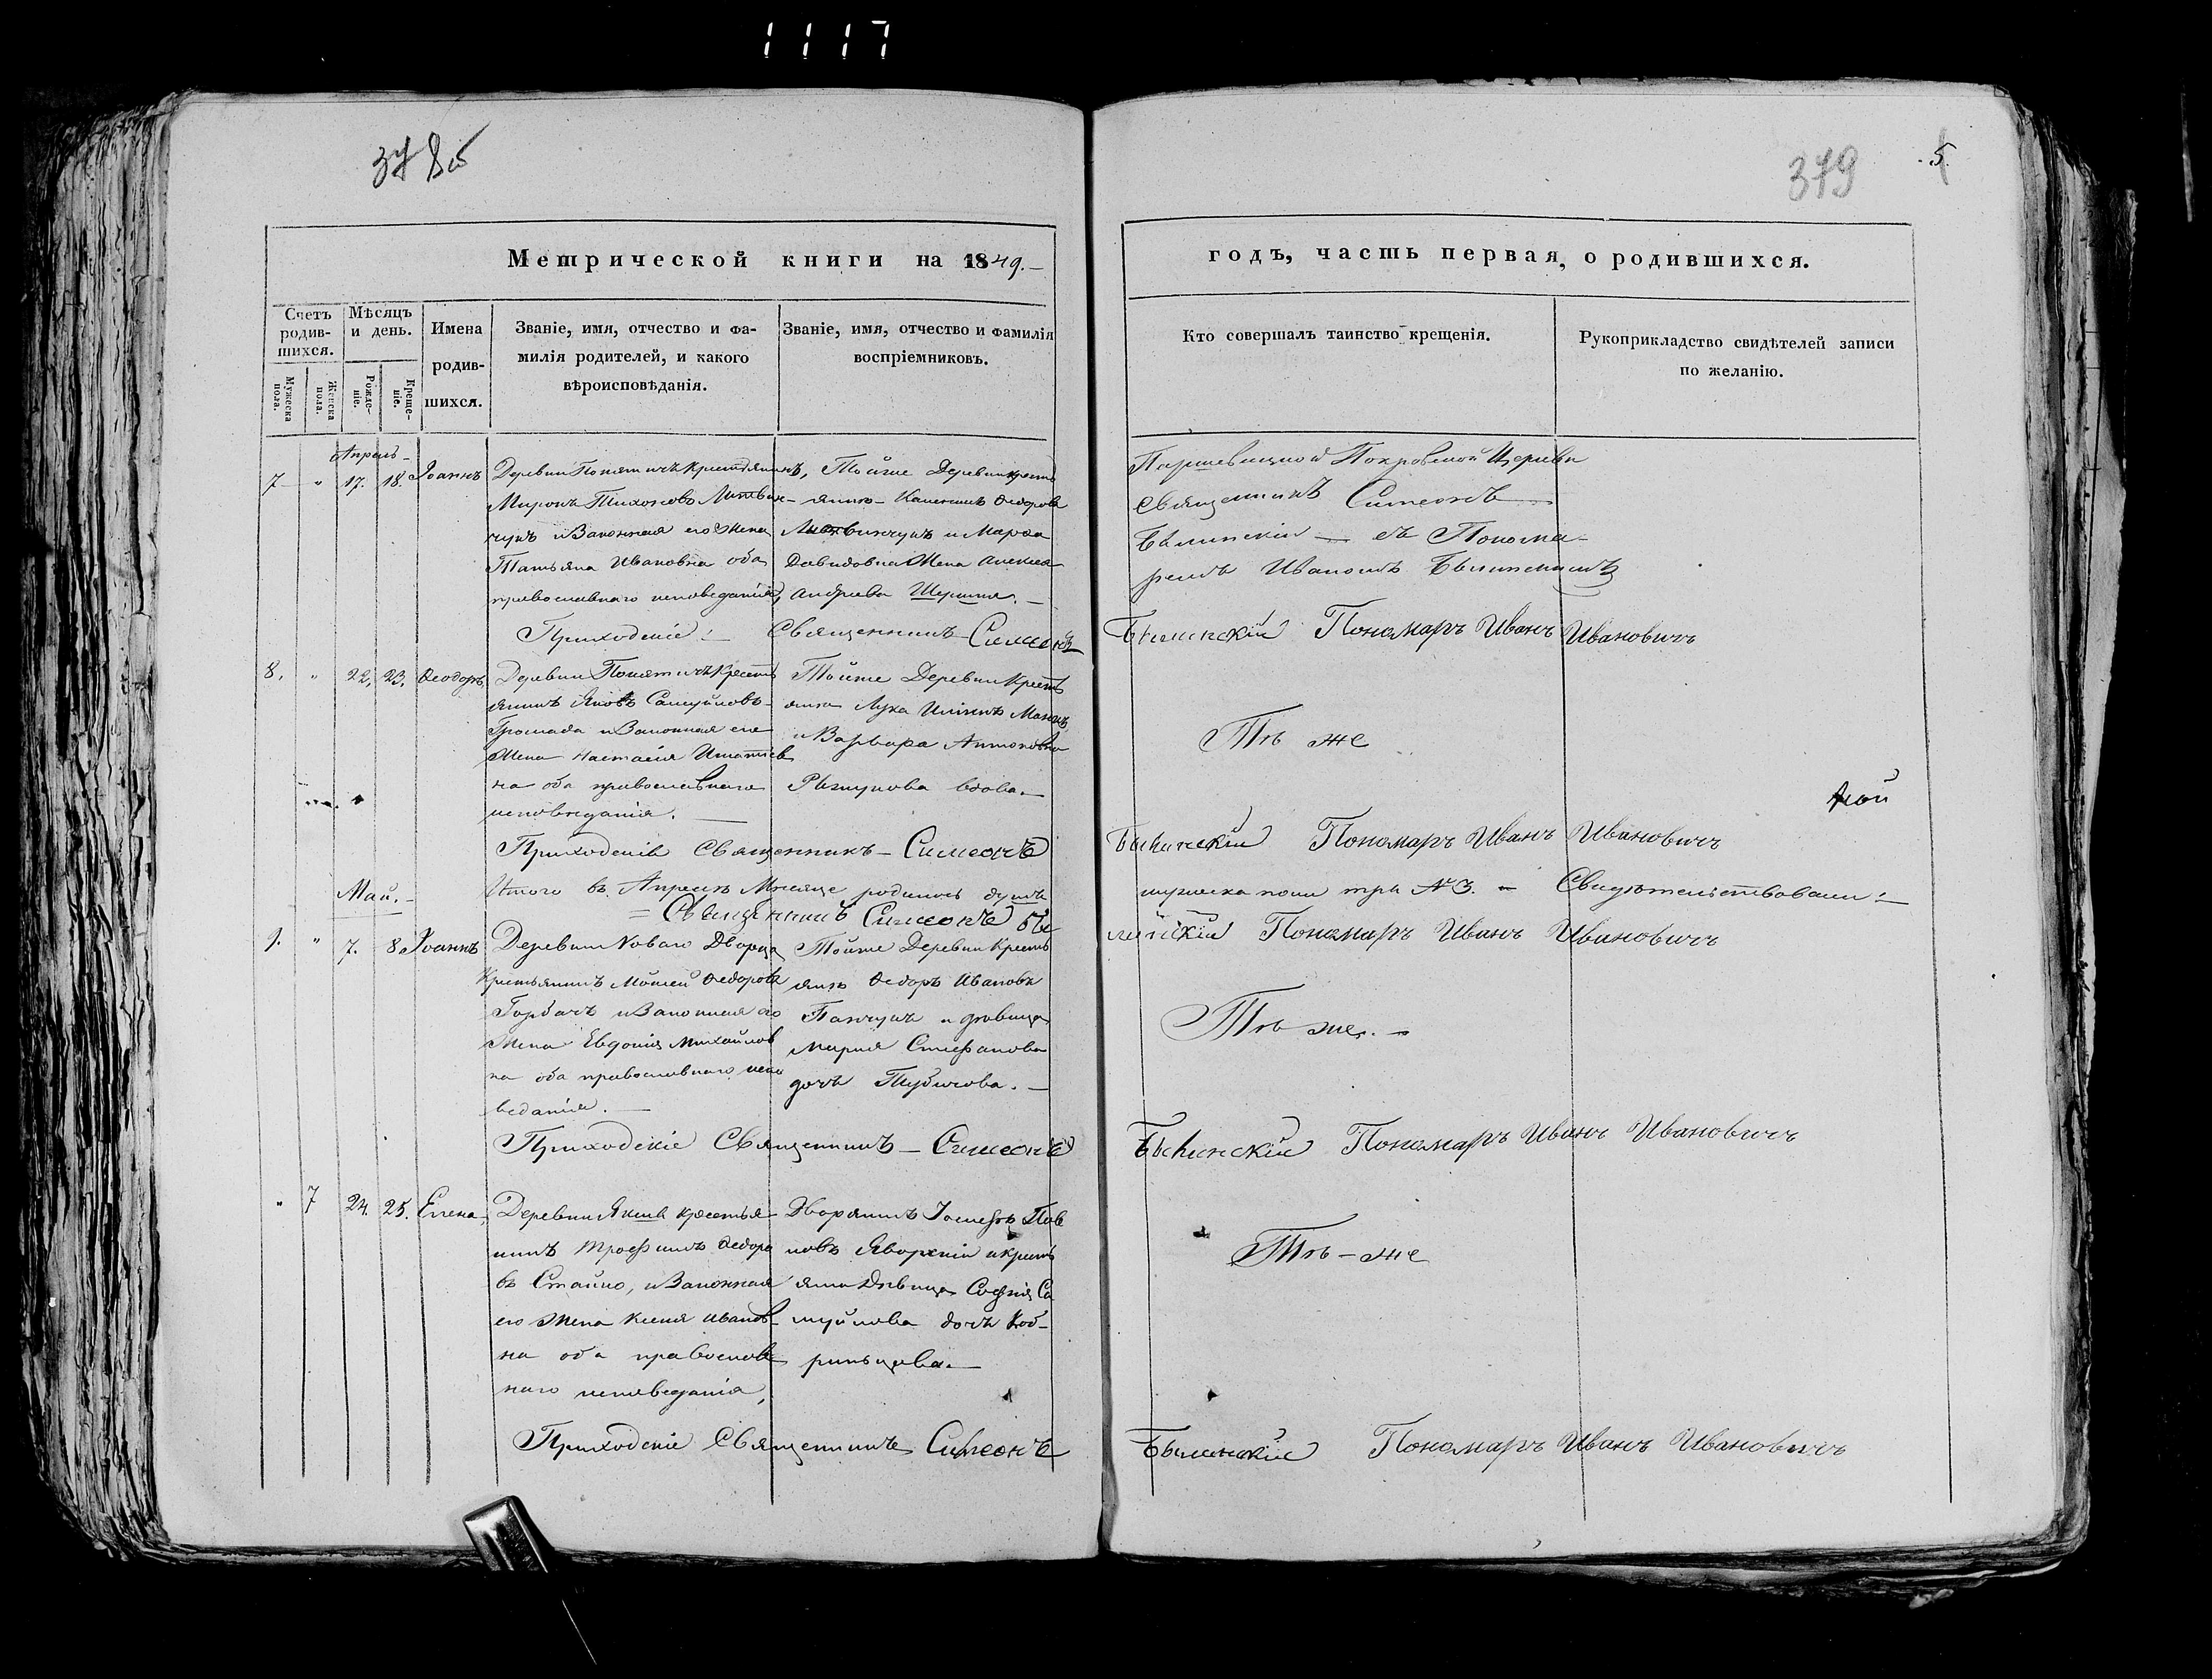 1117
378об
379
5.
Метрической книги на 1849.–
годъ, часть первая, о родившихся.
Счетъ родив-шихся.
Мужеска пола.
Женска пола.
Мѣсяцъ и день.
Рожде-ніе.
Креще-ніе.
Имена
родив-
шихся.
Званіе, имя, отчество и фа-
милія родителей, и какого
вѣроисповѣданія.
Званіе, имя, отчество и фамилія
воспріемниковъ.
Кто совершалъ таинство крещенія.
Рукоприкладство свидѣтелей записи
по желанію.
Апрель–
7 " 17. 18. Іоаннъ
Деревни Крестьянинъ,
Миронъ Тихоновъ Литвин-
чукъ и Законная его Жена
Татьяна Ивановна оба
православнаго исповеданія,
Тойже Деревни крест
янинъ Федоровъ
Литвинчукъ и Марѳа
Давидовна Жена Алексея
Андреева
Покровской Церкви
Священникъ Симеонъ
Былинскій – съ Понома-
ремъ Иваномъ Былинскимъ
Приходскіе: – Священникъ Симеонъ
Былинскій Пономарь Иванъ Ивановичъ
8. " 22. 23. Ѳеодоръ
Деревни Крестъ
янинъ Яковъ Самуйловъ
Громада и Законная его
Жена Настасія Игнатіев
на оба православнаго
исповѣданія.
Тойже Деревни Кресть
янинъ Лука
и Варвара Антоновна
вдова.–
Тѣ же
Приходскіе Священникъ – Симеонъ
Былинскій Пономарь Иванъ Ивановичъ
Итого въ Апрелѣ Месяце родилось душъ
мужеска пола три №3. – Свидѣтельствовали: –
= Священникъ Симеонъ Бы
линскій Пономарь Иванъ Ивановичъ
Май.–
9. " 7. 8. Іоаннъ
Деревни Новаго Дворца
Крестьянинъ Мойсей Федоровъ
Горбачъ и Законная его
Жена Евдокія Михайлов
на оба православнаго испо
веданія.–
Тойже Деревни Кресть
янинъ Федоръ Ивановъ
Панчукъ и девица
Марія Стефанова
дочь –
Тѣ же.–
Приходскіе Священникъ – Симеонъ
Былинскій Пономарь Иванъ Ивановичъ
" 7 24. 25. Елена,
Деревни крестья–
нинъ Трофимъ Федоро
въ Стайно, и Законная
его Жена Ксенія Иванов–
на оба православ
наго исповеданія,
Дворянинъ Іосифъ Пав
ловъ Яворскій и кресть
янка Дѣвица Софія Са
муйлова дочь Коб–
ринцова.–
Тѣ – же
Приходскіе Священникъ Симеонъ
Былинскій Пономарь Иванъ Ивановичъ